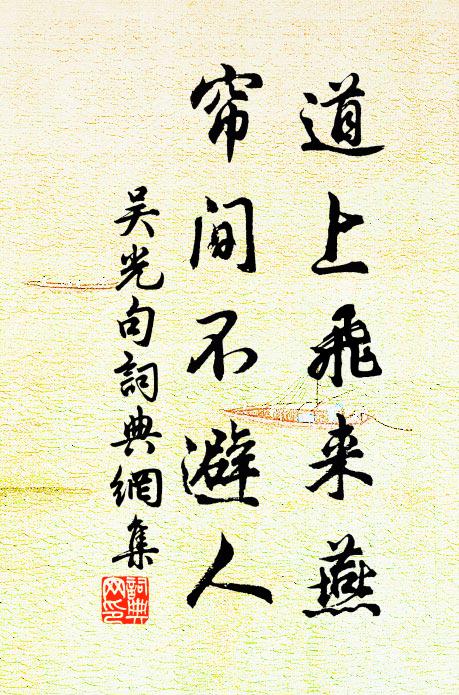 道上飛来燕
帘间不避人
吴光句詞典網集
詞典
网印